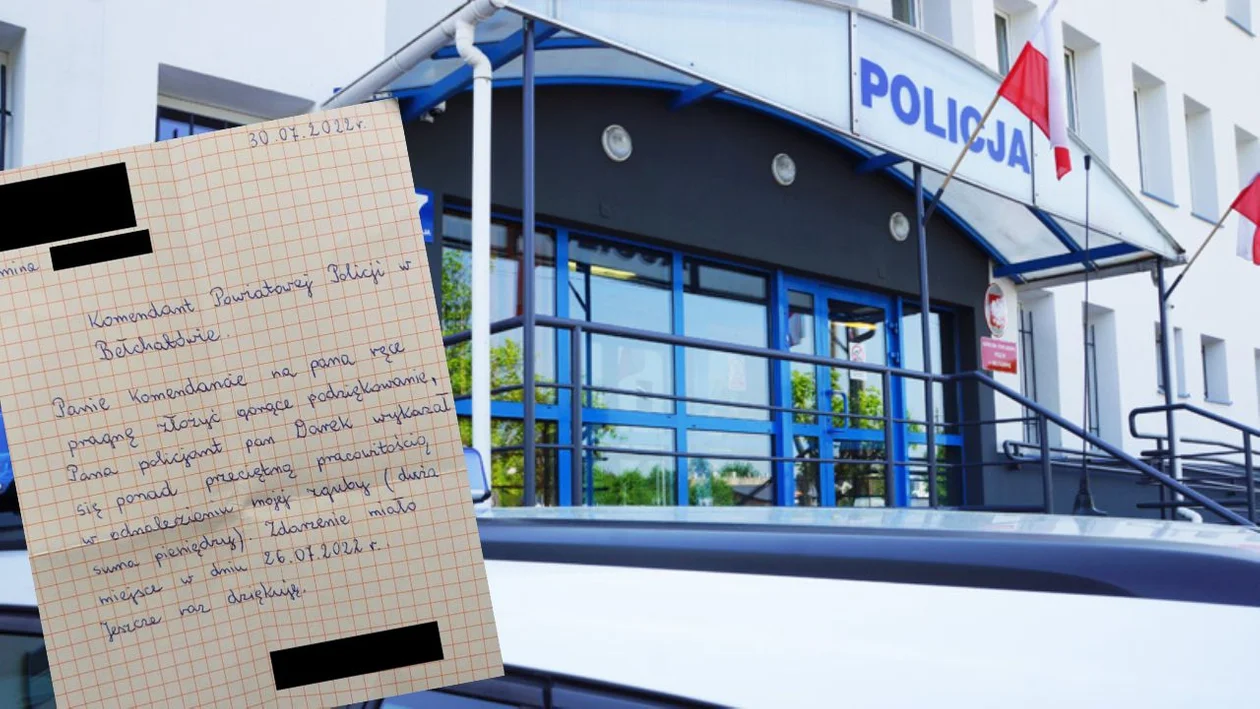 30.07.2022r.
mina
Komendant Powiatowej Policji w
Bełchatowie.
Panie Komendancie na pana ręce
pragnę złożyć gorące podziękowanie,
Pana policjant pan Darek wykazał
się ponad przeciętną pracowitością
w odnalezieniu mojej zguby (duża
suma pieniędzy). Zdarzenie miało
miejsce w dniu 26.07.2022 r.
Jeszcze raz dziękuję.
POLICJA